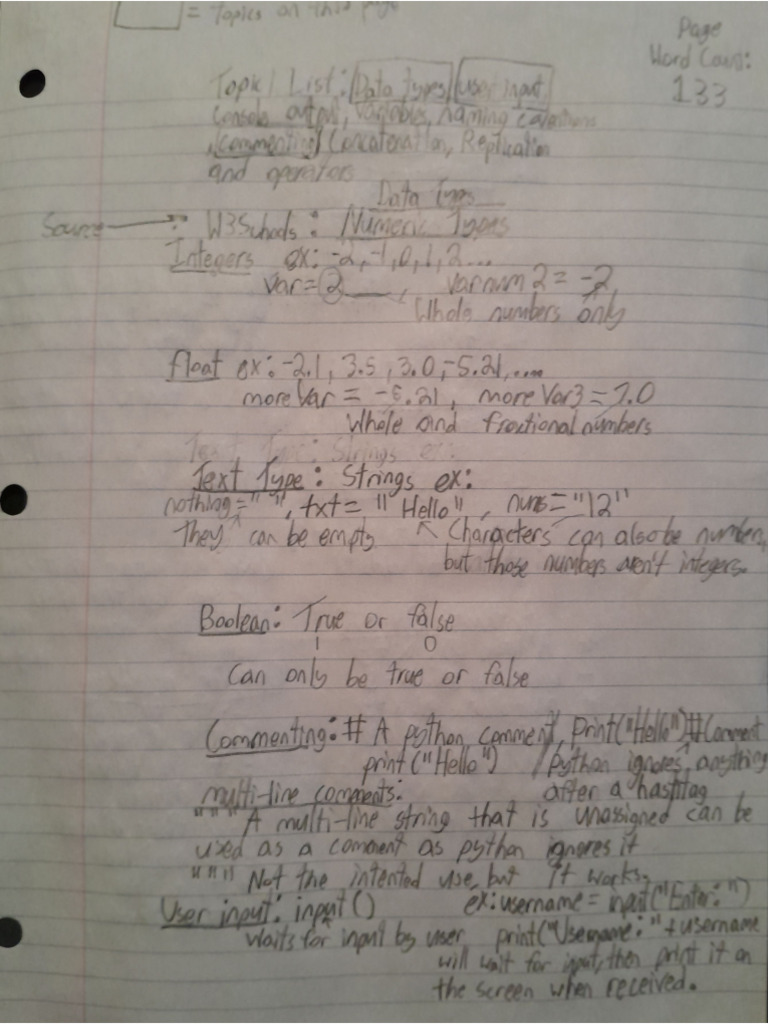 = Topics on this page
Page
Word Count:
133
Topic List: Data types, user input
console output, variables, naming
, commenting, Concatenation, Replication
and operators
Data Types
Source → W3Schools: Numeric Types
Integers ex: -2, -1, 0, 1, 2...
var = 2 , varnum2 = -2
Whole numbers only
float ex: -2.1, 3.5, 3.0, -5.21,....
moreVar = -5.21, moreVar3 = 7.0
Whole and fractional numbers
Text Type: Strings ex:
Text Type: Strings ex:
nothing = " ", txt = "Hello", nums = "12"
They can be empty ↖ Characters can also be numbers,
but those numbers aren't integers.
Boolean: True or false
1 0
Can only be true or false
Commenting: # A python comment, Print("Hello")#Comment
print("Hello") /Python ignores anything
after a hashtag
multi-line comments:
"""A multi-line string that is unassigned can be
used as a comment as python ignores it
""" Not the intented use, but it works.
User input: input() ex: username = input("Enter: ")
Waits for input by user print("Username: " + username
will wait for input, then print it on
the screen when received.